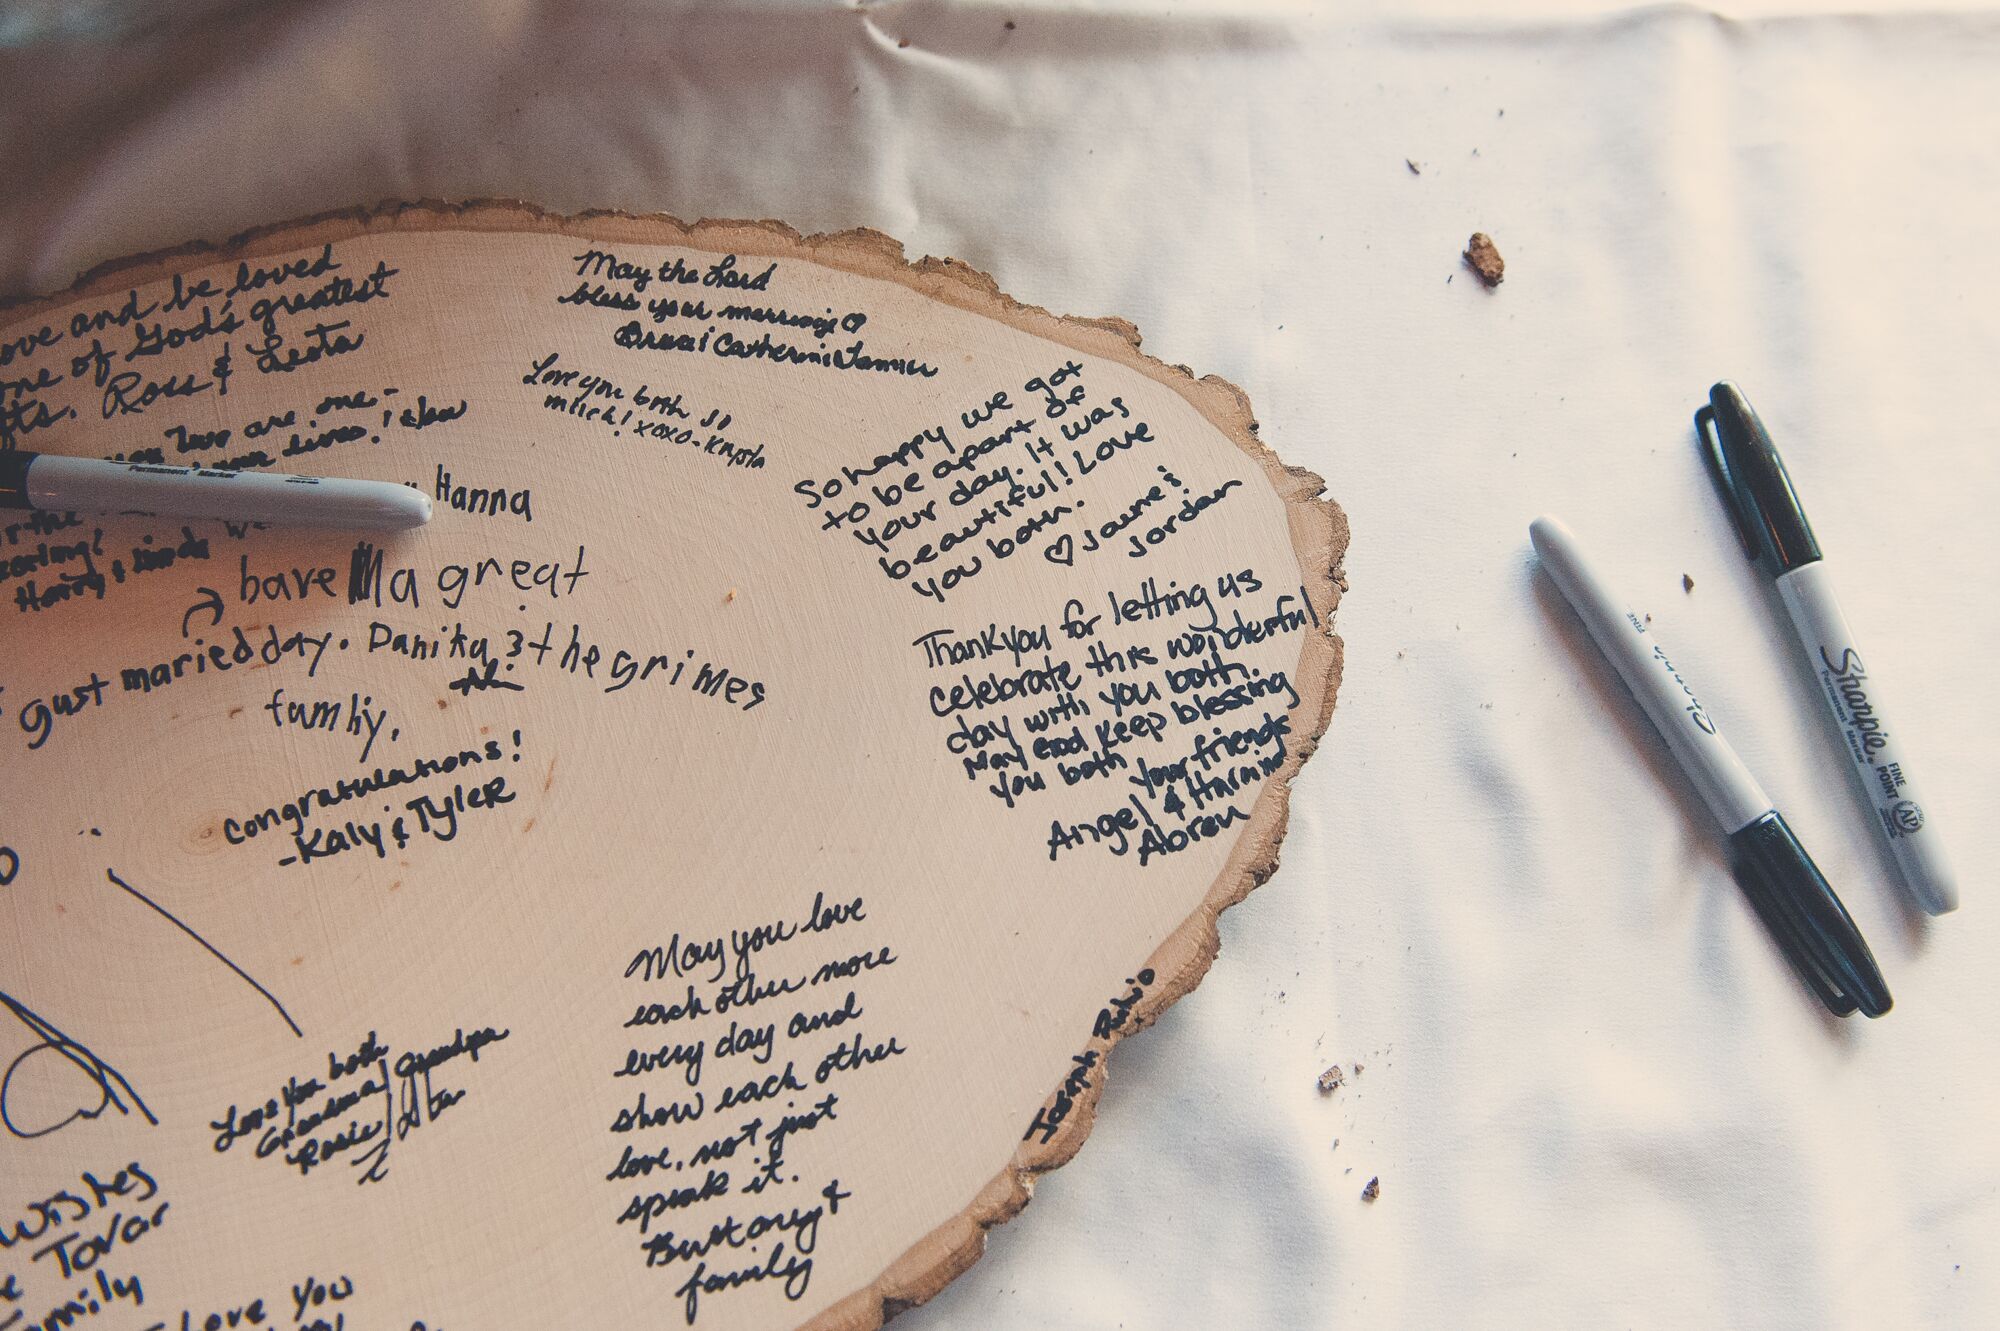 ove and be loved
one of God's greatest
Ross & Lesta
you two are one-
your lives!
Permanent Marker
Hanna
have a great
gust maried day. Danika & the grimes
family,
congratulations!
-Kaly & Tyler
May the Lord
bless your marriage
Catherine
Love you both so
much! xoxo-Krysta
So happy we got
to be apart of
your day. It was
beautiful! Love
you both.
Jayme &
Jordan
Thankyou for letting us
celebrate this wonderful
day with you both.
May God keep blessing
you both
your friends
Angel &
Abreu
May you love
each other more
every day and
show each other
love, not just
speak it.
Buttarey &
family
Joseph Rubio
Love you both
Grandma Grandpa
Rosie
wishes
Tovar
Family
Love you
Sharpie
FINE
Sharpie
Permanent Marker
FINE
POINT
AP